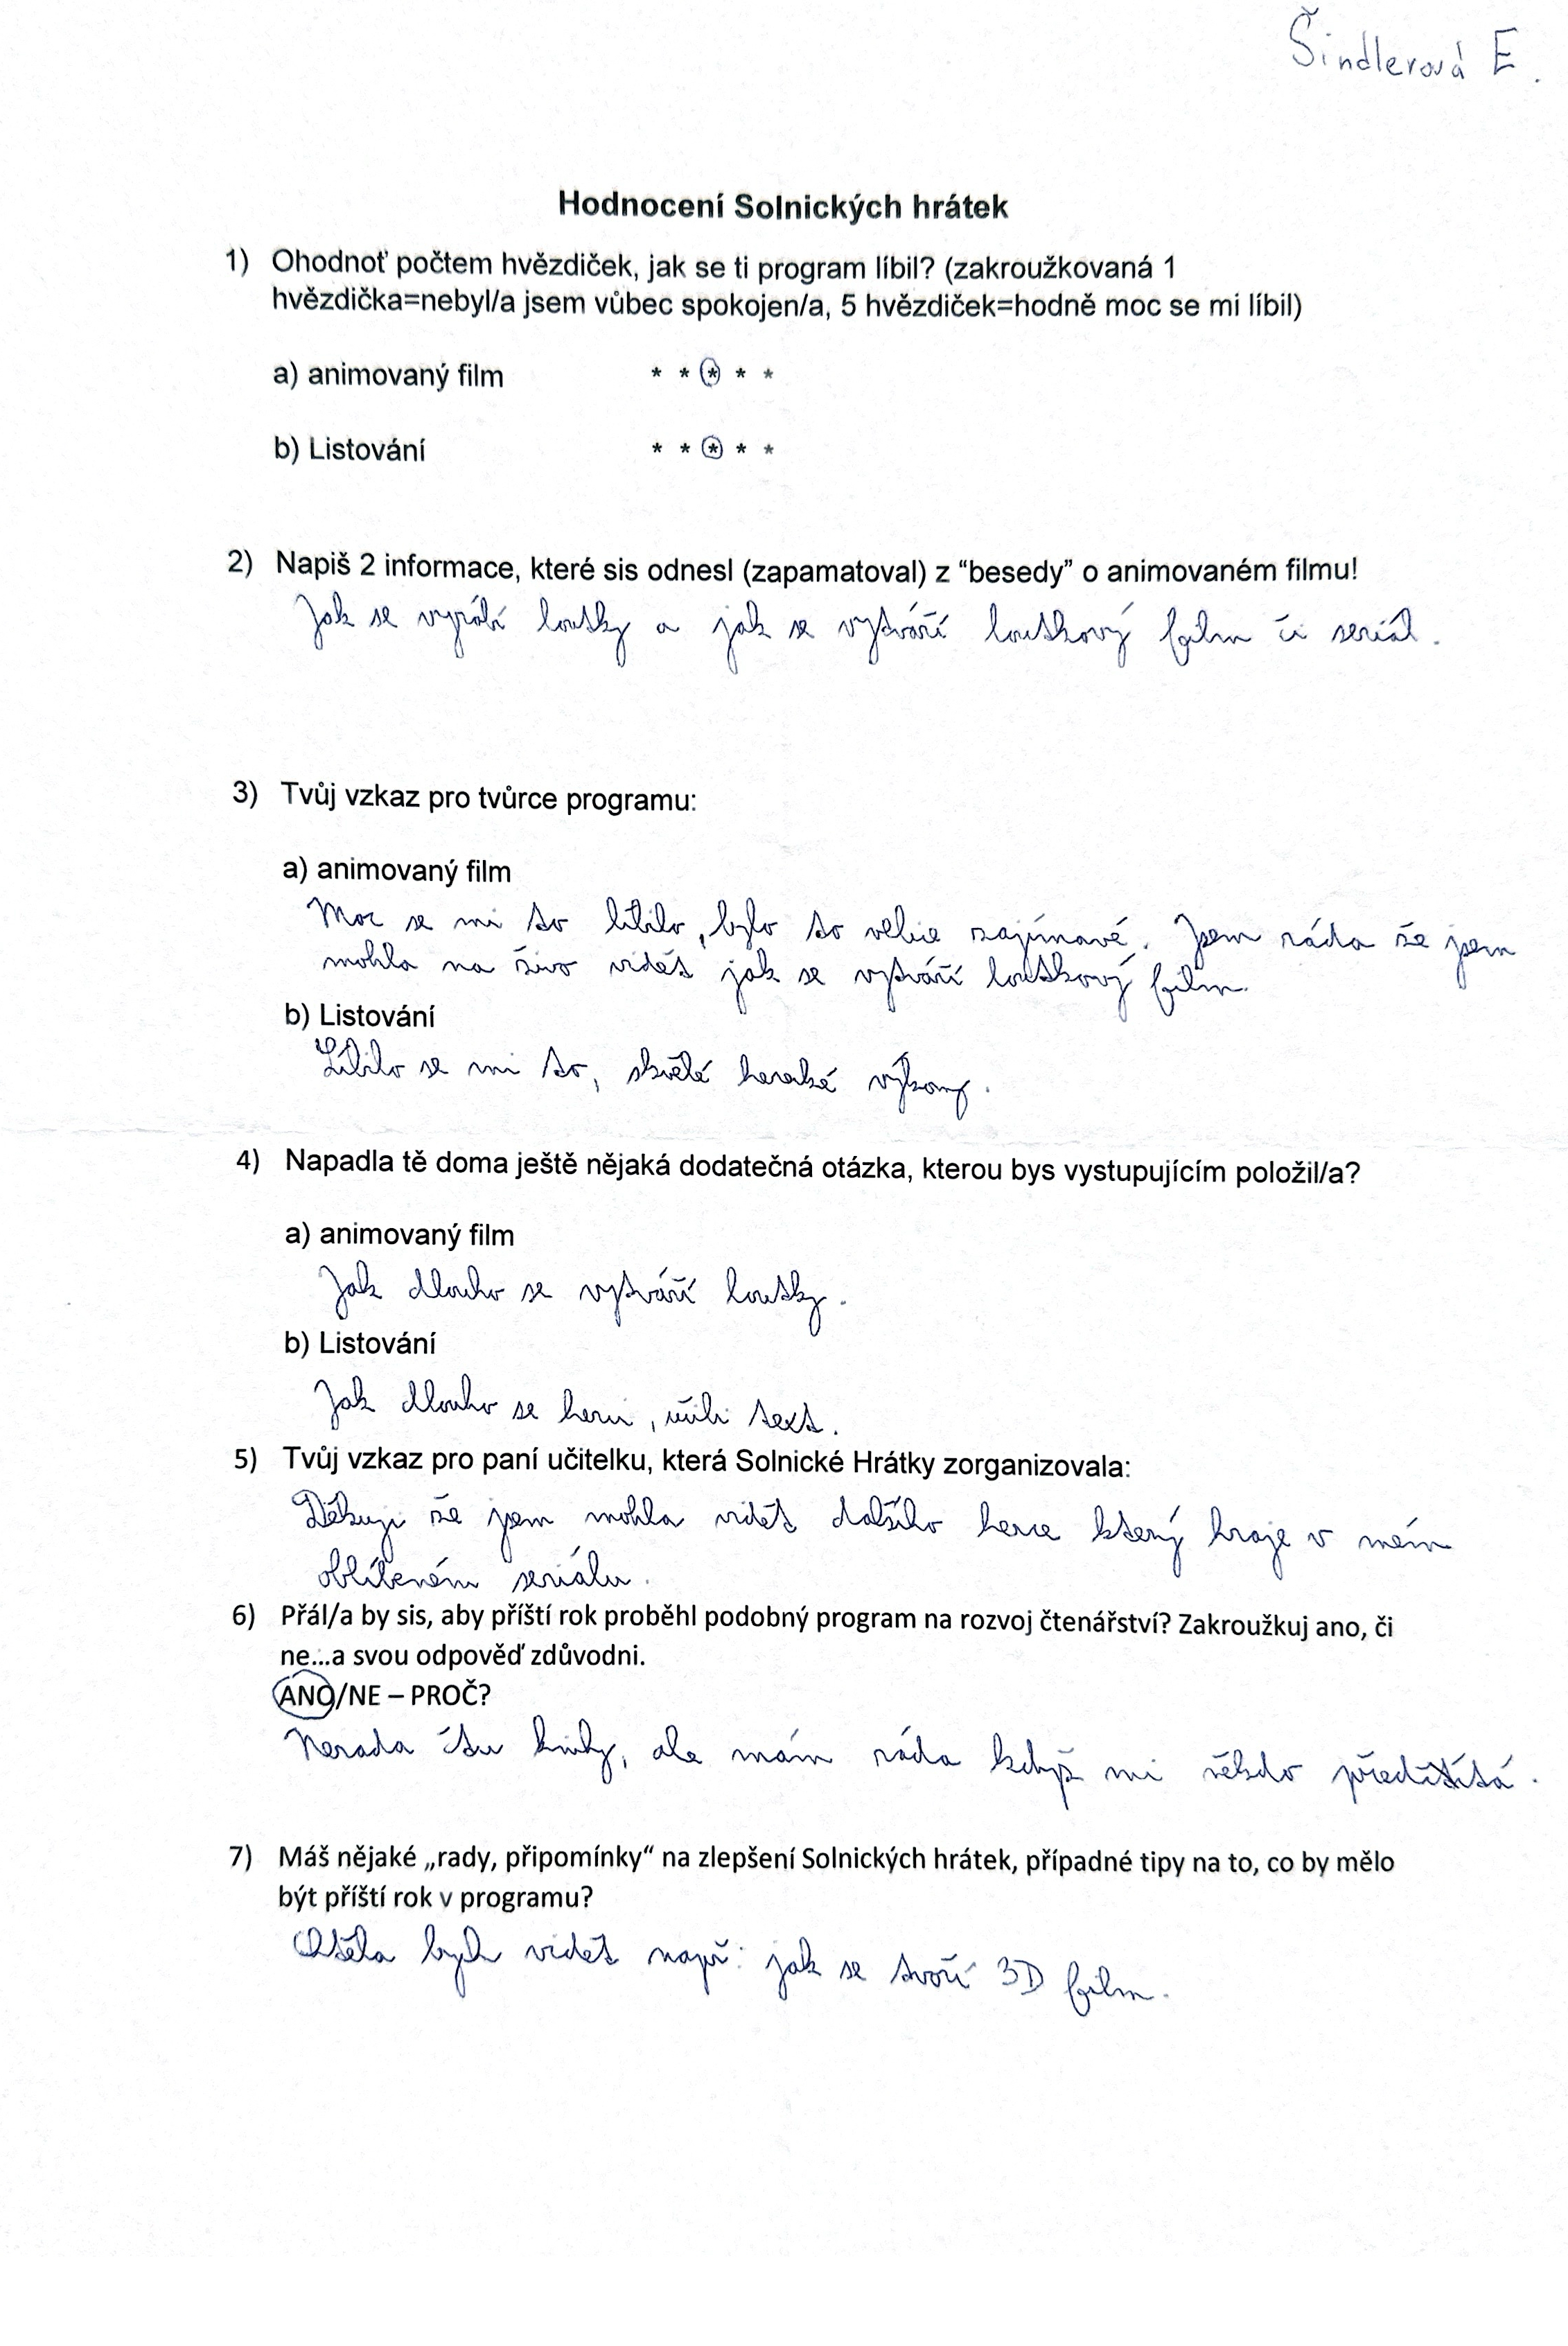 Šindlerová E.
Hodnocení Solnických hrátek
1) Ohodnoť počtem hvězdiček, jak se ti program líbil? (zakroužkovaná 1
hvězdička=nebyl/a jsem vůbec spokojen/a, 5 hvězdiček=hodně moc se mi líbil)
a) animovaný film * * * * *
b) Listování * * * * *
2) Napiš 2 informace, které sis odnesl (zapamatoval) z “besedy” o animovaném filmu!
Jak se vyrábí loutky a jak se vytváří loutkový film či seriál.
3) Tvůj vzkaz pro tvůrce programu:
a) animovaný film
Moc se mi to líbilo, bylo to velice zajímavé. Jsem ráda že jsem
mohla na živo vidět jak se vytváří loutkový film.
b) Listování
Líbilo se mi to, skvělé herecké výkony.
4) Napadla tě doma ještě nějaká dodatečná otázka, kterou bys vystupujícím položil/a?
a) animovaný film
Jak dlouho se vytváří loutky.
b) Listování
Jak dlouho se herci, učili text.
5) Tvůj vzkaz pro paní učitelku, která Solnické Hrátky zorganizovala:
Děkuji že jsem mohla vidět dalšího herce který hraje v mém
oblíbeném seriálu.
6) Přál/a by sis, aby příští rok proběhl podobný program na rozvoj čtenářství? Zakroužkuj ano, či
ne...a svou odpověď zdůvodni.
ANO/NE – PROČ?
Nerada čtu knihy, ale mám ráda když mi někdo předčítá.
7) Máš nějaké „rady, připomínky“ na zlepšení Solnických hrátek, případné tipy na to, co by mělo
být příští rok v programu?
Chtěla bych vidět např: jak se tvoří 3D film.